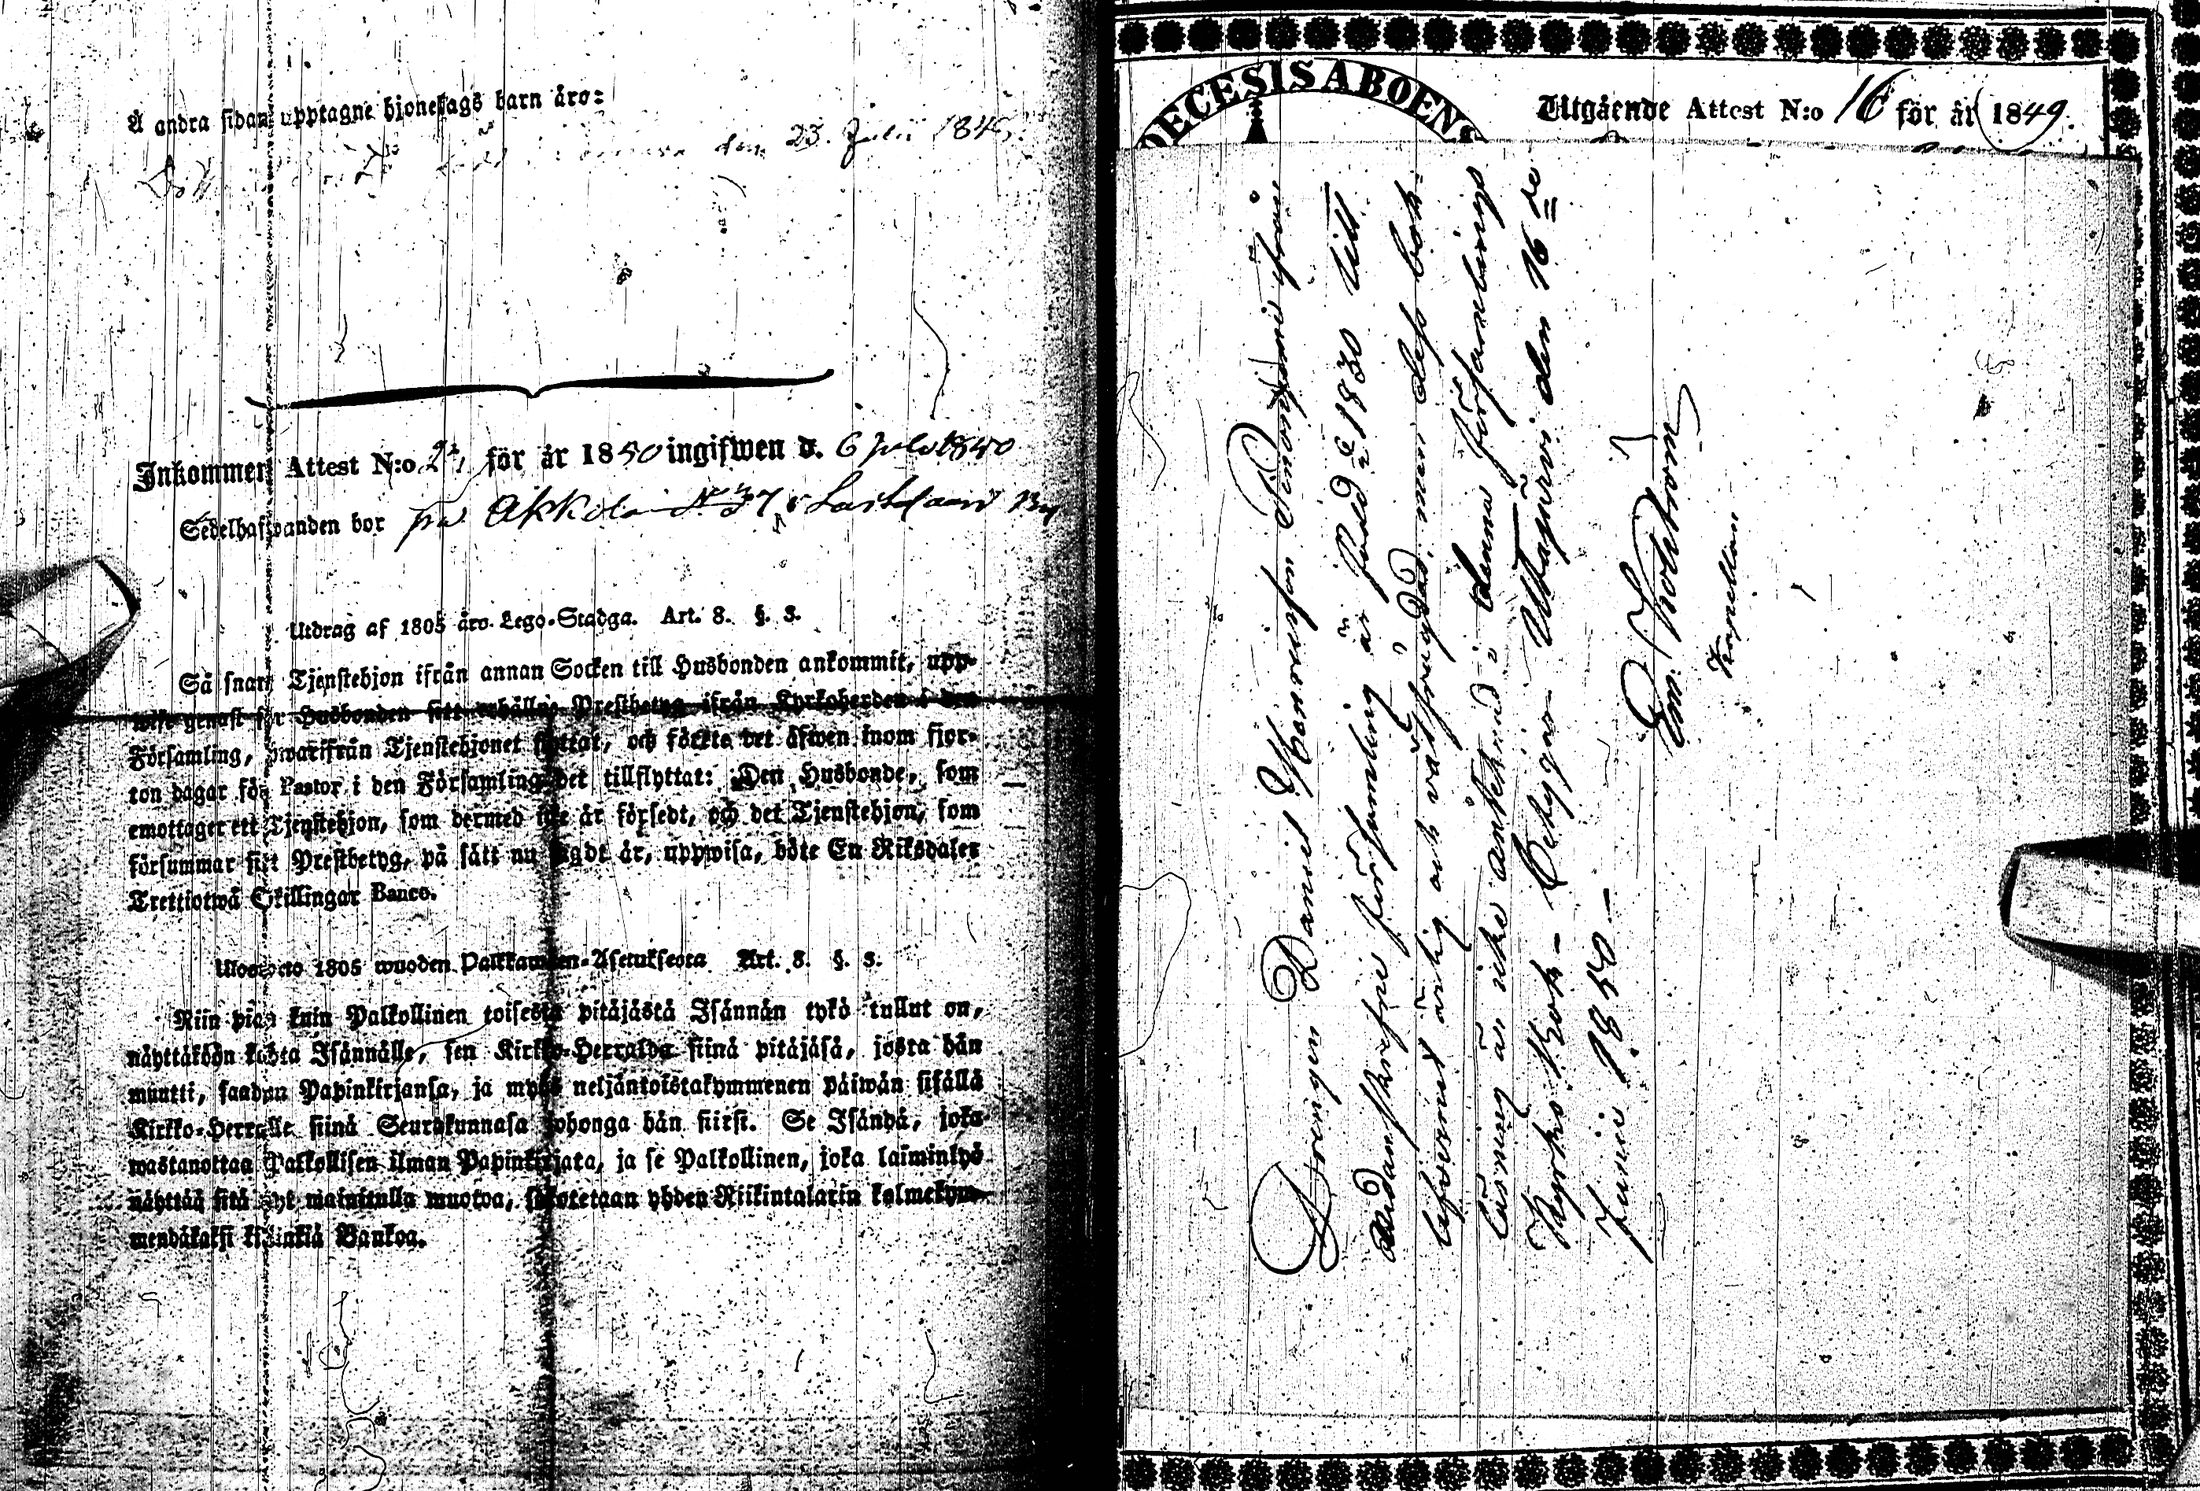 Å andra sidan upptagne hjonelags barn äro:
den 23. Julii 184
Inkommen Attest N:o 2 för år 1850 ingifwen d. 6 Juli 1850
Sedelhafwanden bor på Akkola N 37 i
Utdrag af 1805 års Lego-Stadga. Art. 8. §. 3.
Så snart Tjenstehjon ifrån annan Socken till Husbonden ankommit, upp-
wise genast för Husbonden sitt erhållne Prestbetyg ifrån Kyrkoherden i den
Församling, hwarifrån Tjenstehjonet flyttat, och förete det äfwen inom fjor-
ton dagar för Pastor i den Församling det tillflyttat: Den Husbonde, som
emottager ett Tjenstehjon, som dermed icke är försedt, och det Tjenstehjon, som
försummar sitt Prestbetyg, på sätt nu sagdt är, uppwisa, böte En Riksdaler
Trettiotwå Skillingar Banco.
Ulosweto 1805 wuoden Palkkawäen-Asetuksesta Art. 8. §. 3.
Niin pian kuin Palkollinen toisesta pitäjästä Isännän tykö tullut on,
näyttäköön kohta Isännälle, sen Kirkko-Herralda siinä pitäjäsä, josta hän
muutti, saadun Papinkirjansa, ja myös neljäntoistakymmenen päiwän sisällä
Kirkko-Herralle siinä Seurakunnasa johonga hän siirsi. Se Isändä, joka
wastanottaa Palkollisen ilman Papinkirjata, ja se Palkollinen, joka laiminlyö
näyttää sitä nyt mainitulla muotoa, sakotetaan yhden Riikintalarin kolmekym-
mendäkaksi killinkiä Bankoa.
DECESIS ABOENS
Utgående Attest N:o 16 för år 1849.
Drengen Daniel Henricsson Simonsson ifrån
Nedanskrefne församling är född d. 1830 till
lefvernet ärlig och välfrägdad, men dess bok-
läsning är icke antecknad i denna församlings
Kyrko Bok – Betygar Uttajärvi den 16de
Junii 1850 –
Em. Snellström
Kapellan